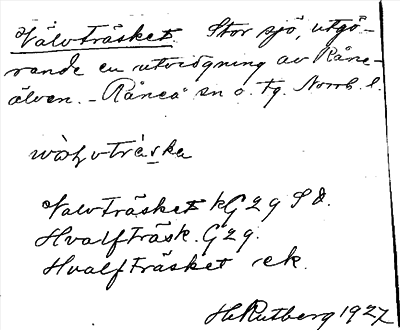 Välvträsket. Stor sjö, utgö-
rande en utvidgning av Råne-
älven. - Råneå sn o. tg. Norrb. l.
Valvträsket kG29 Sd.
Hvalfträsk. G29.
Hvalfträsket ek.
H. Rutberg 1927